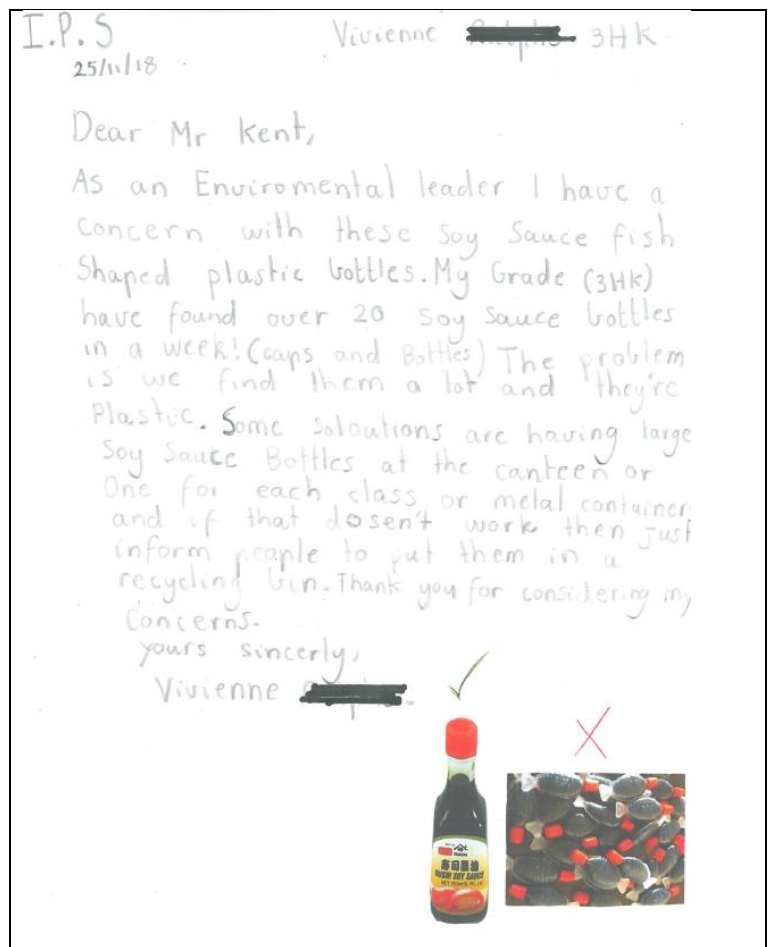 I.P.S
Vivienne 3HK
25/11/18
Dear Mr Kent,
As an Enviromental leader I have a
concern with these Soy Sauce fish
Shaped plastic bottles. My Grade (3HK)
have found over 20 Soy Sauce bottles
in a week! (caps and Bottles) The problem
is we find them a lot and they're
Plastic. Some Soloutions are having large
Soy Sauce Bottles at the canteen or
One for each class or metal container
and if that dosen't work then just
inform people to put them in a
recycling bin. Thank you for considering my
Concerns.
yours sincerly,
Vivienne
寿司醤油
SUSHI SOY SAUCE